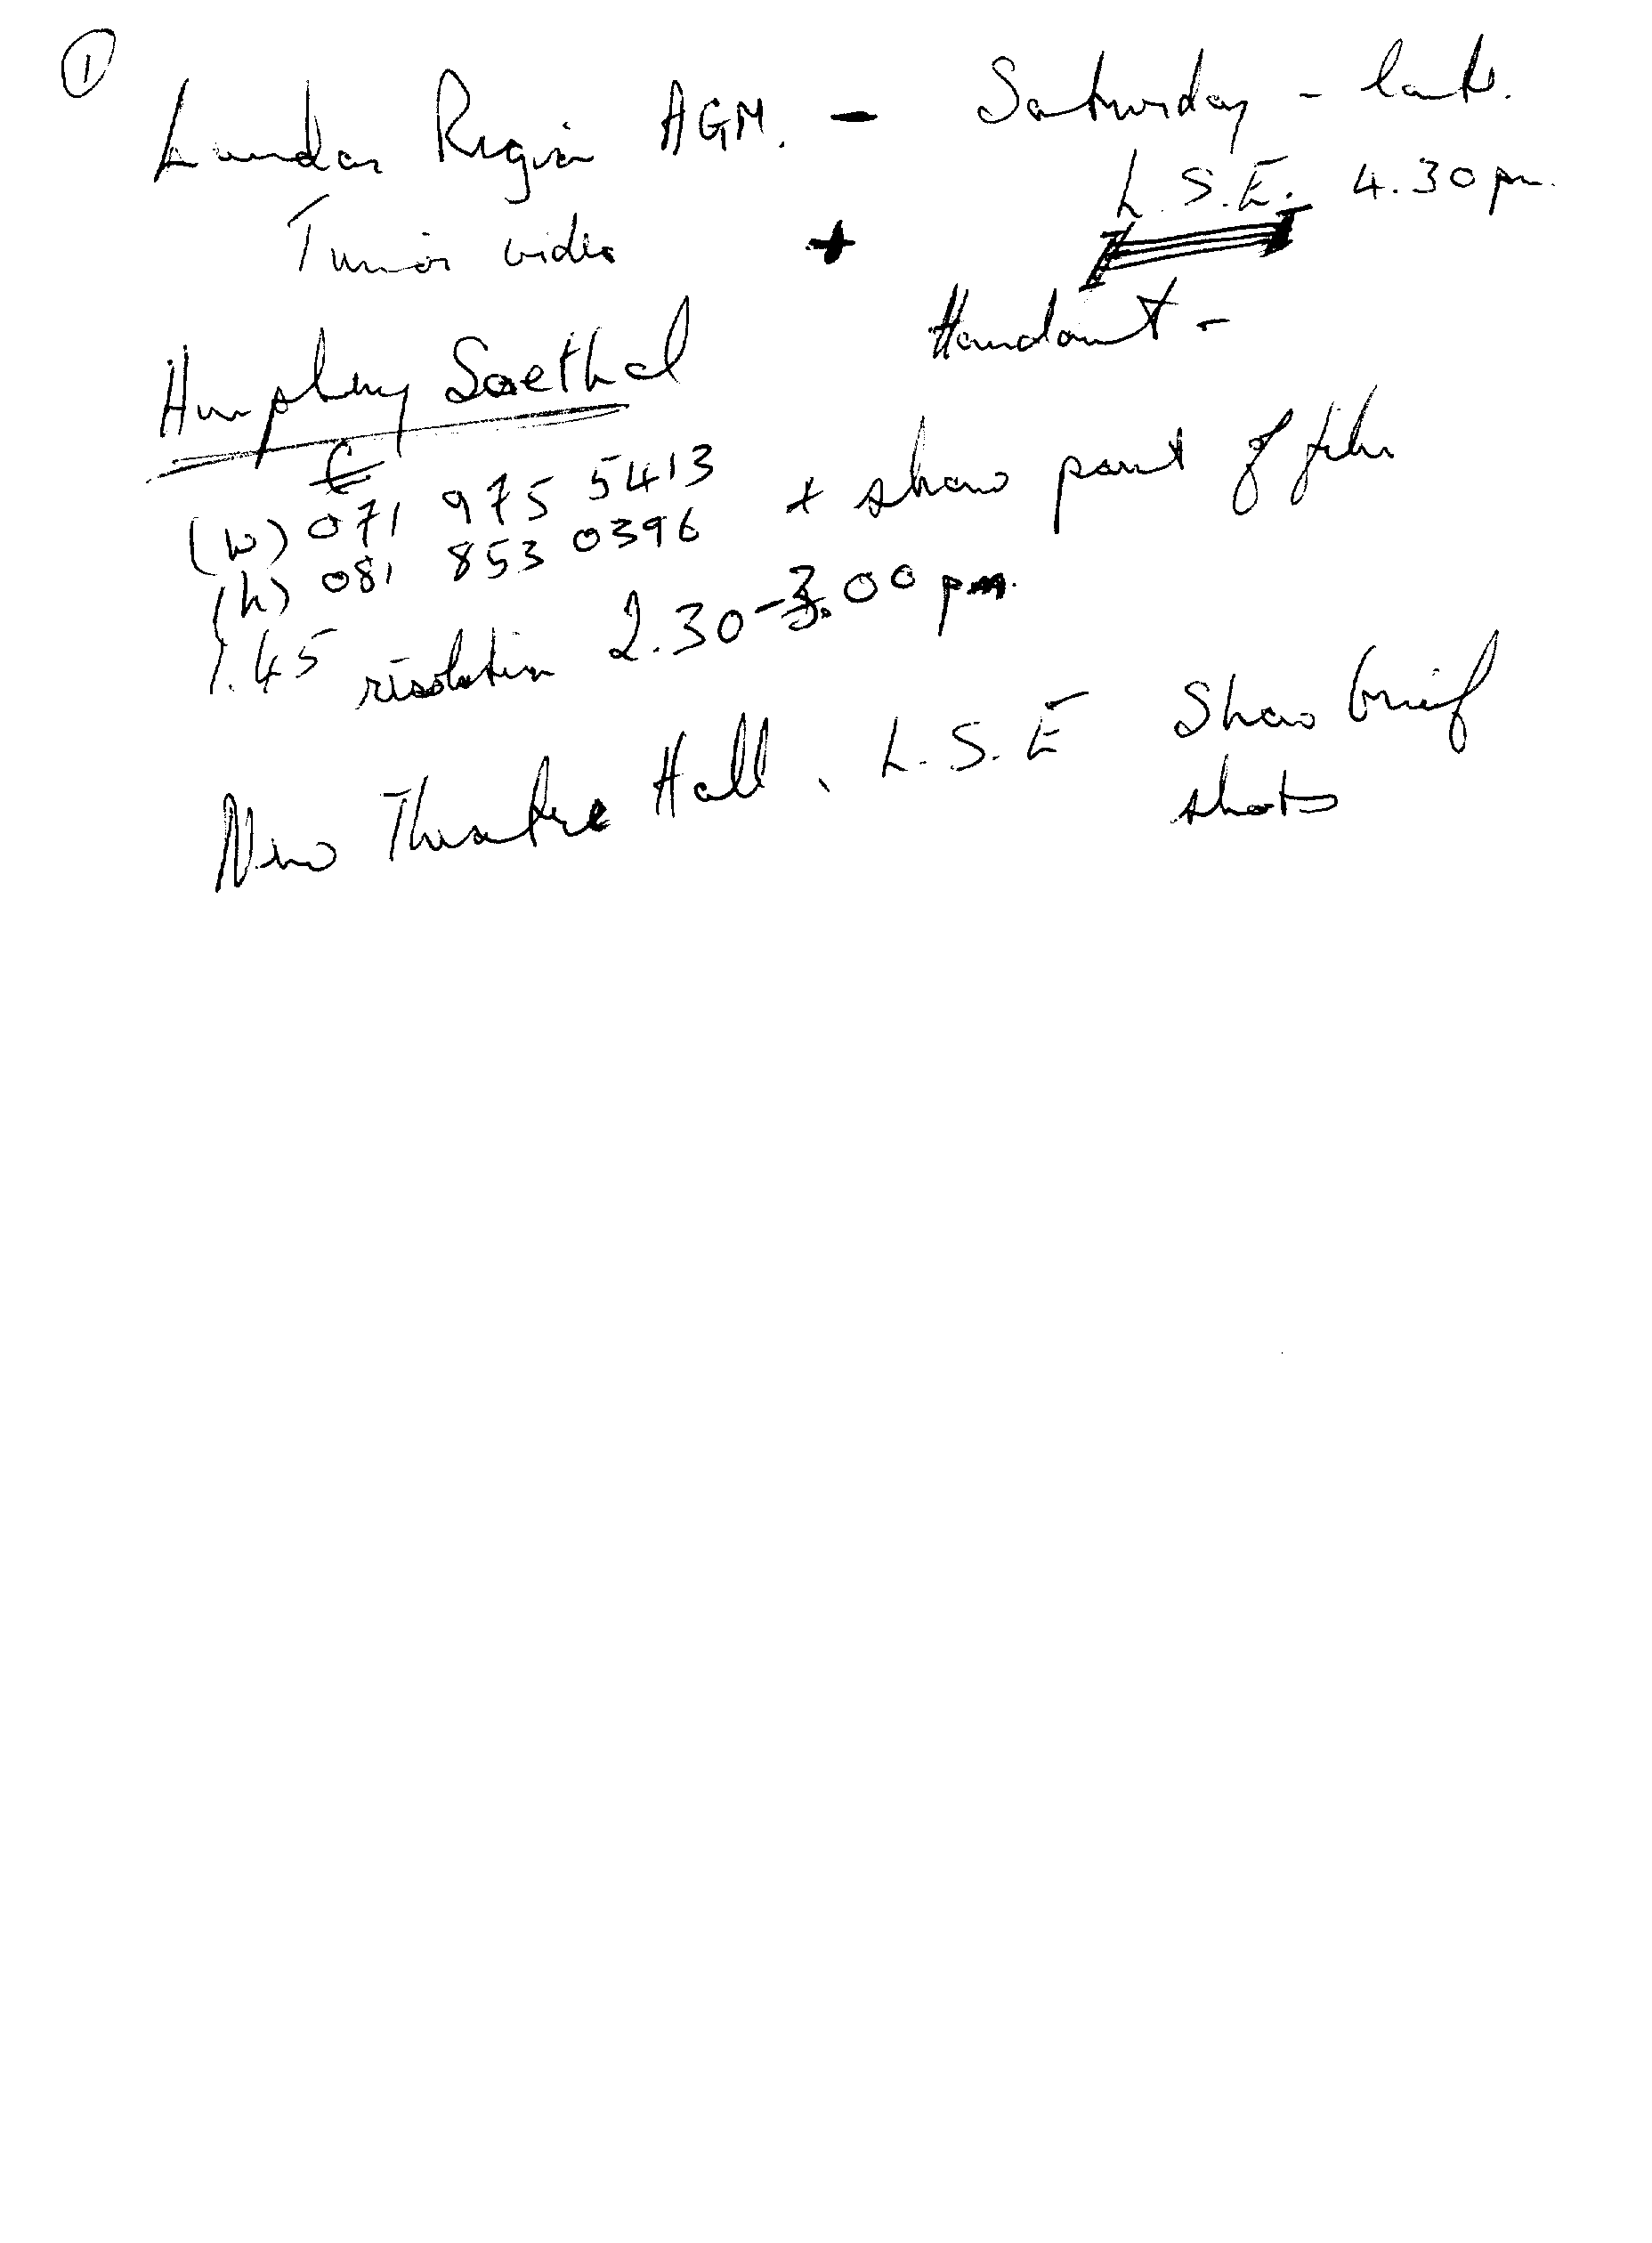 ①
London Region AGM. - Saturday - late.
L.S.E. 4.30 pm.
Timor video +
Handout -
Humphrey Soethal
(w) 071 975 5413 + show part of film
(h) 081 853 0396
1.45 resolution 2.30-3.00 pm.
New Theatre Hall, L.S.E Show brief
shots